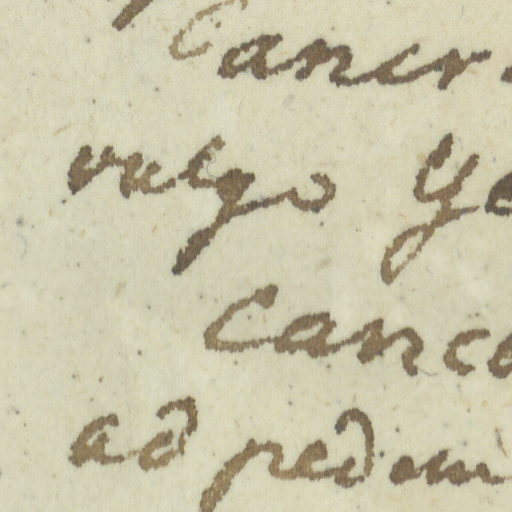 Cancr
vulgo Ye
Cance
ad pedem